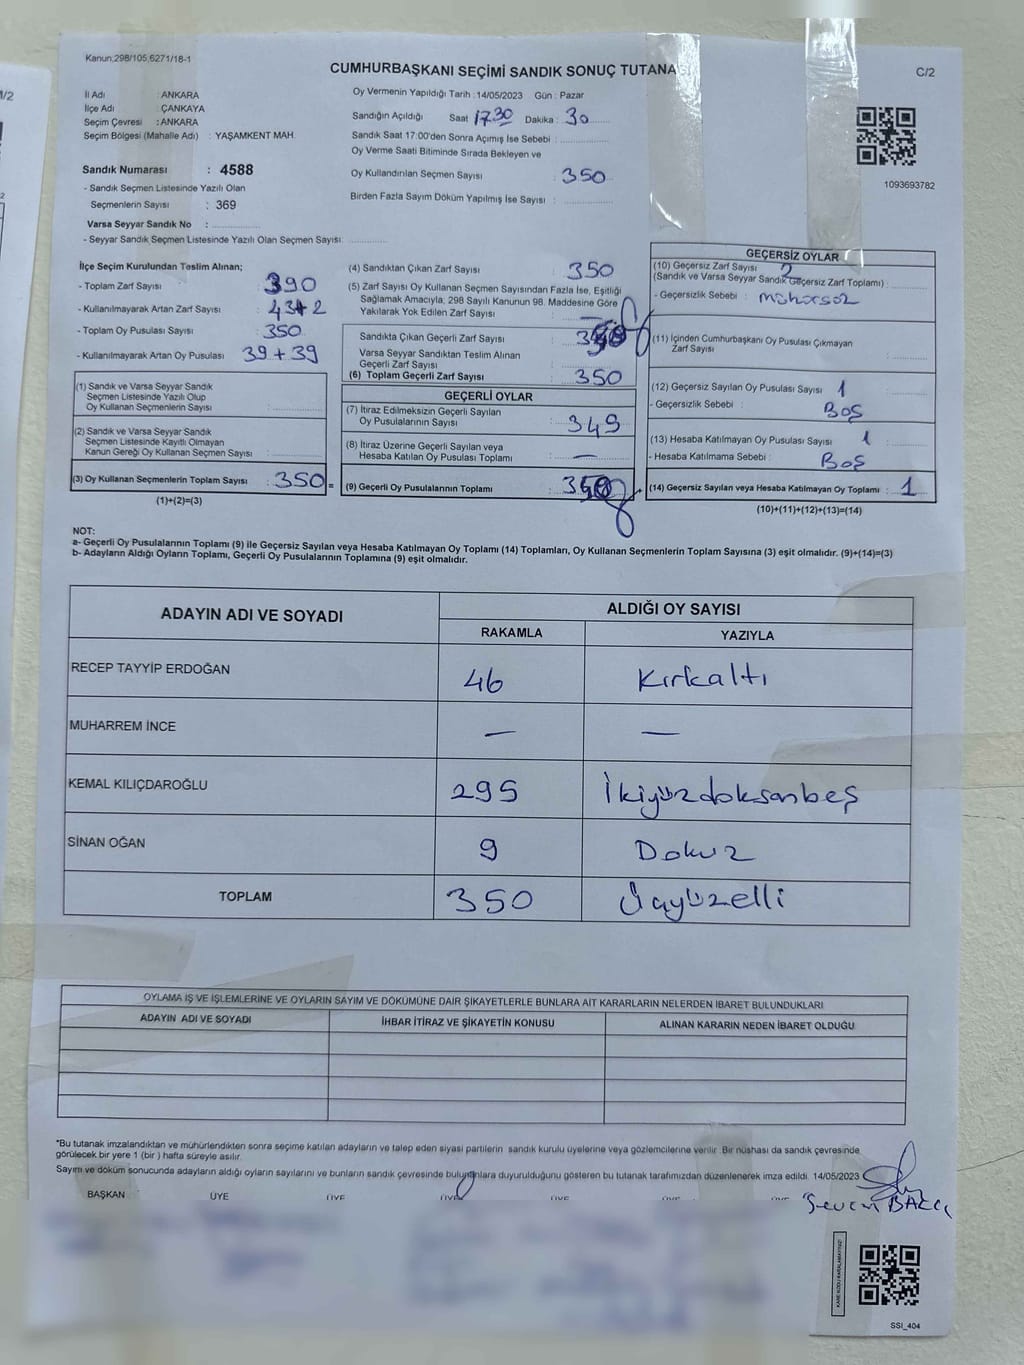 Kanun:298/105,6271/18-1
CUMHURBAŞKANI SEÇİMİ SANDIK SONUÇ TUTANA
C/2
İl Adı : ANKARA
İlçe Adı : ÇANKAYA
Seçim Çevresi : ANKARA
Seçim Bölgesi (Mahalle Adı) : YAŞAMKENT MAH.
Sandık Numarası : 4588
- Sandık Seçmen Listesinde Yazılı Olan
Seçmenlerin Sayısı : 369
Varsa Seyyar Sandık No :
- Seyyar Sandık Seçmen Listesinde Yazılı Olan Seçmen Sayısı:
Oy Vermenin Yapıldığı Tarih : 14/05/2023 Gün : Pazar
Sandığın Açıldığı Saat 17.30 Dakika : 30
Sandık Saat 17:00'den Sonra Açımış İse Sebebi :
Oy Verme Saati Bitiminde Sırada Bekleyen ve
Oy Kullandırılan Seçmen Sayısı : 350
Birden Fazla Sayım Döküm Yapılmış İse Sayısı :
1093693782
İlçe Seçim Kurulundan Teslim Alınan;
- Toplam Zarf Sayısı : 390
- Kullanılmayarak Artan Zarf Sayısı : 43+2
- Toplam Oy Pusulası Sayısı : 350
- Kullanılmayarak Artan Oy Pusulası : 39+39
(1) Sandık ve Varsa Seyyar Sandık
Seçmen Listesinde Yazılı Olup
Oy Kullanan Seçmenlerin Sayısı :
(2) Sandık ve Varsa Seyyar Sandık
Seçmen Listesinde Kayıtlı Olmayan
Kanun Gereği Oy Kullanan Seçmen Sayısı :
(3) Oy Kullanan Seçmenlerin Toplam Sayısı : 350
(1)+(2)=(3)
(4) Sandıktan Çıkan Zarf Sayısı : 350
(5) Zarf Sayısı Oy Kullanan Seçmen Sayısından Fazla İse, Eşitliği
Sağlamak Amacıyla, 298 Sayılı Kanunun 98. Maddesine Göre
Yakılarak Yok Edilen Zarf Sayısı : —
Sandıkta Çıkan Geçerli Zarf Sayısı :
Varsa Seyyar Sandıktan Teslim Alınan
Geçerli Zarf Sayısı :
(6) Toplam Geçerli Zarf Sayısı : 350
GEÇERLİ OYLAR
(7) İtiraz Edilmeksizin Geçerli Sayılan
Oy Pusulalarının Sayısı : 349
(8) İtiraz Üzerine Geçerli Sayılan veya
Hesaba Katılan Oy Pusulası Toplamı : —
(9) Geçerli Oy Pusulalarının Toplamı :
GEÇERSİZ OYLAR
(10) Geçersiz Zarf Sayısı 2
(Sandık ve Varsa Seyyar Sandık Geçersiz Zarf Toplamı) :
- Geçersizlik Sebebi : mühürsüz
(11) İçinden Cumhurbaşkanı Oy Pusulası Çıkmayan
Zarf Sayısı :
(12) Geçersiz Sayılan Oy Pusulası Sayısı : 1
- Geçersizlik Sebebi : BOŞ
(13) Hesaba Katılmayan Oy Pusulası Sayısı : 1
- Hesaba Katılmama Sebebi : BOŞ
(14) Geçersiz Sayılan veya Hesaba Katılmayan Oy Toplamı : 1
(10)+(11)+(12)+(13)=(14)
NOT:
a- Geçerli Oy Pusulalarının Toplamı (9) ile Geçersiz Sayılan veya Hesaba Katılmayan Oy Toplamı (14) Toplamları, Oy Kullanan Seçmenlerin Toplam Sayısına (3) eşit olmalıdır. (9)+(14)=(3)
b- Adayların Aldığı Oyların Toplamı, Geçerli Oy Pusulalarının Toplamına (9) eşit olmalıdır.
ADAYIN ADI VE SOYADI ALDIĞI OY SAYISI
RAKAMLA YAZIYLA
RECEP TAYYİP ERDOĞAN 46 Kırkaltı
MUHARREM İNCE — —
KEMAL KILIÇDAROĞLU 295 İkiyüzdoksanbeş
SİNAN OĞAN 9 Dokuz
TOPLAM 350 Üçyüzelli
OYLAMA İŞ VE İŞLEMLERİNE VE OYLARIN SAYIM VE DÖKÜMÜNE DAİR ŞİKAYETLERLE BUNLARA AİT KARARLARIN NELERDEN İBARET BULUNDUKLARI
ADAYIN ADI VE SOYADI İHBAR İTİRAZ VE ŞİKAYETİN KONUSU ALINAN KARARIN NEDEN İBARET OLDUĞU
*Bu tutanak imzalandıktan ve mühürlendikten sonra seçime katılan adayların ve talep eden siyasi partilerin sandık kurulu üyelerine veya gözlemcilerine verilir. Bir nüshası da sandık çevresinde
görülecek bir yere 1 (bir) hafta süreyle asılır.
Sayım ve döküm sonucunda adayların aldığı oyların sayılarını ve bunların sandık çevresinde bulunanlara duyurulduğunu gösteren bu tutanak tarafımızdan düzenlenerek imza edildi. 14/05/2023
BAŞKAN ÜYE ÜYE ÜYE ÜYE ÜYE ÜYE
SSI_404